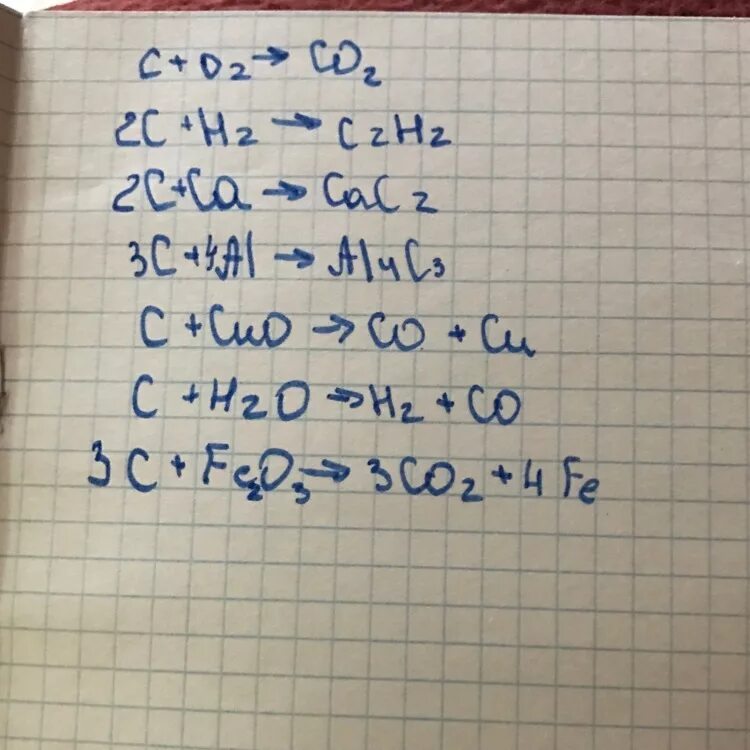 C + O2 → CO2
2C + H2 → C2H2
2C + Ca → CaC2
3C + 4Al → Al4C3
C + CuO → CO + Cu
C + H2O → H2 + CO
3C + Fe2O3 → 3CO2 + 4Fe